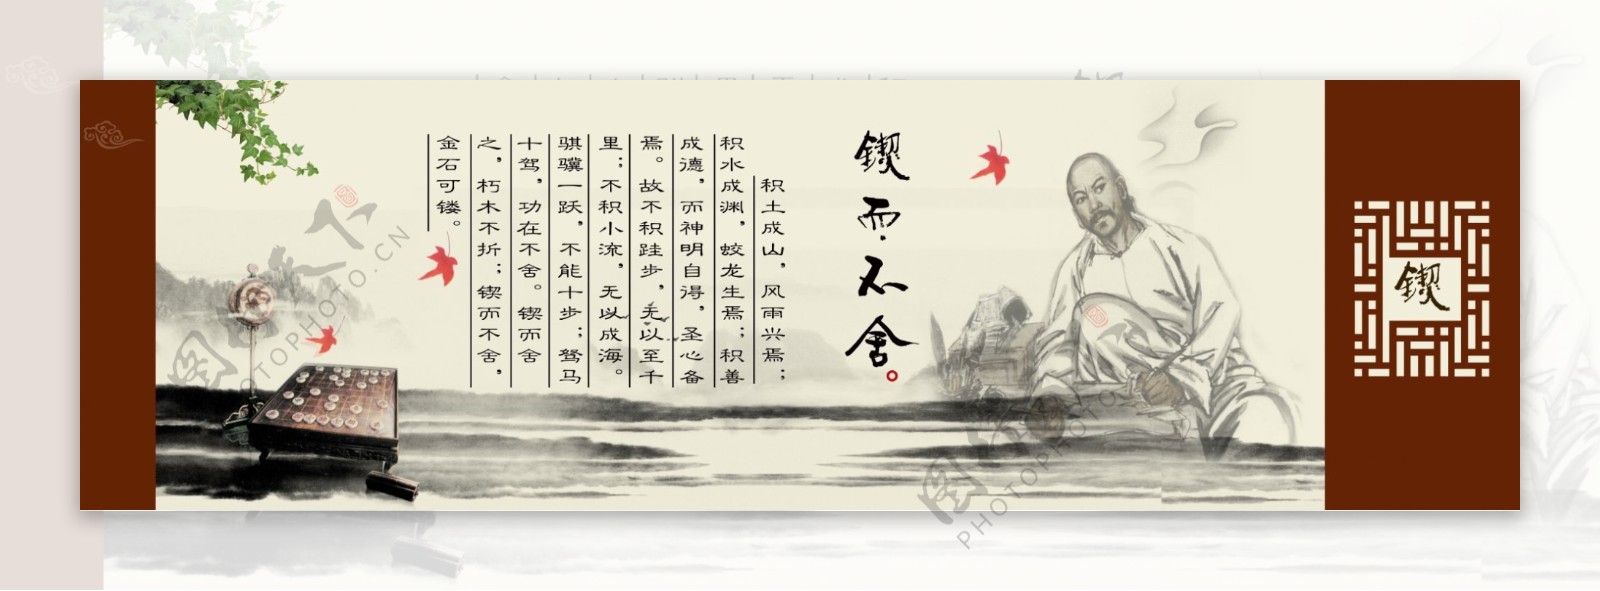 锲而不舍。
积土成山，风雨兴焉；
积水成渊，蛟龙生焉；积善
成德，而神明自得，圣心备
焉。故不积跬步，无以至千
里；不积小流，无以成海。
骐骥一跃，不能十步；驽马
十驾，功在不舍。锲而舍
之，朽木不折；锲而不舍，
金石可镂。
锲
图行天下
PHOTOPHOTO.CN
图行天下
PHOTOPHOTO.CN